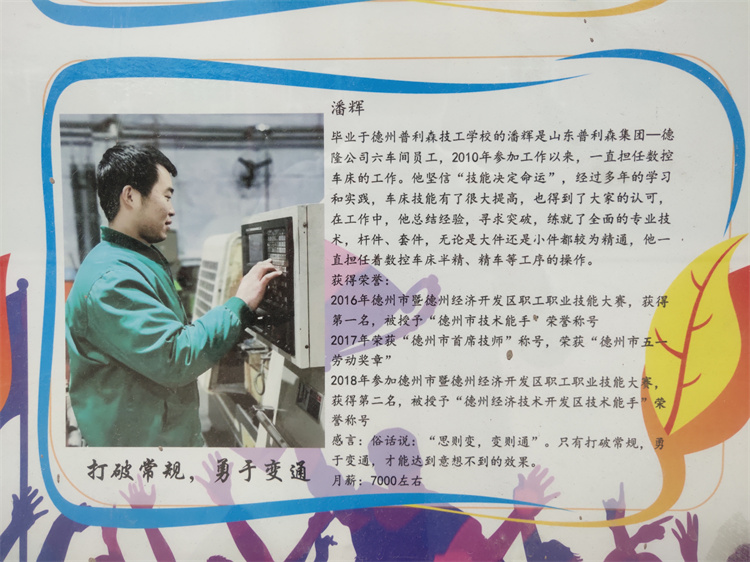 潘辉
毕业于德州普利森技工学校的潘辉是山东普利森集团—德
隆公司六车间员工，2010年参加工作以来，一直担任数控
车床的工作。他坚信“技能决定命运”，经过多年的学习
和实践，车床技能有了很大提高，也得到了大家的认可，
在工作中，他总结经验，寻求突破，练就了全面的专业技
术，杆件、套件，无论是大件还是小件都较为精通，他一
直担任着数控车床半精、精车等工序的操作。
获得荣誉：
2016年德州市暨德州经济开发区职工职业技能大赛，获得
第一名，被授予“德州市技术能手”荣誉称号
2017年荣获“德州市首席技师”称号，荣获“德州市五一
劳动奖章”
2018年参加德州市暨德州经济开发区职工职业技能大赛，
获得第二名，被授予“德州经济技术开发区技术能手”荣
誉称号
感言：俗话说：“思则变，变则通”。只有打破常规，勇
于变通，才能达到意想不到的效果。
月薪：7000左右
打破常规，勇于变通